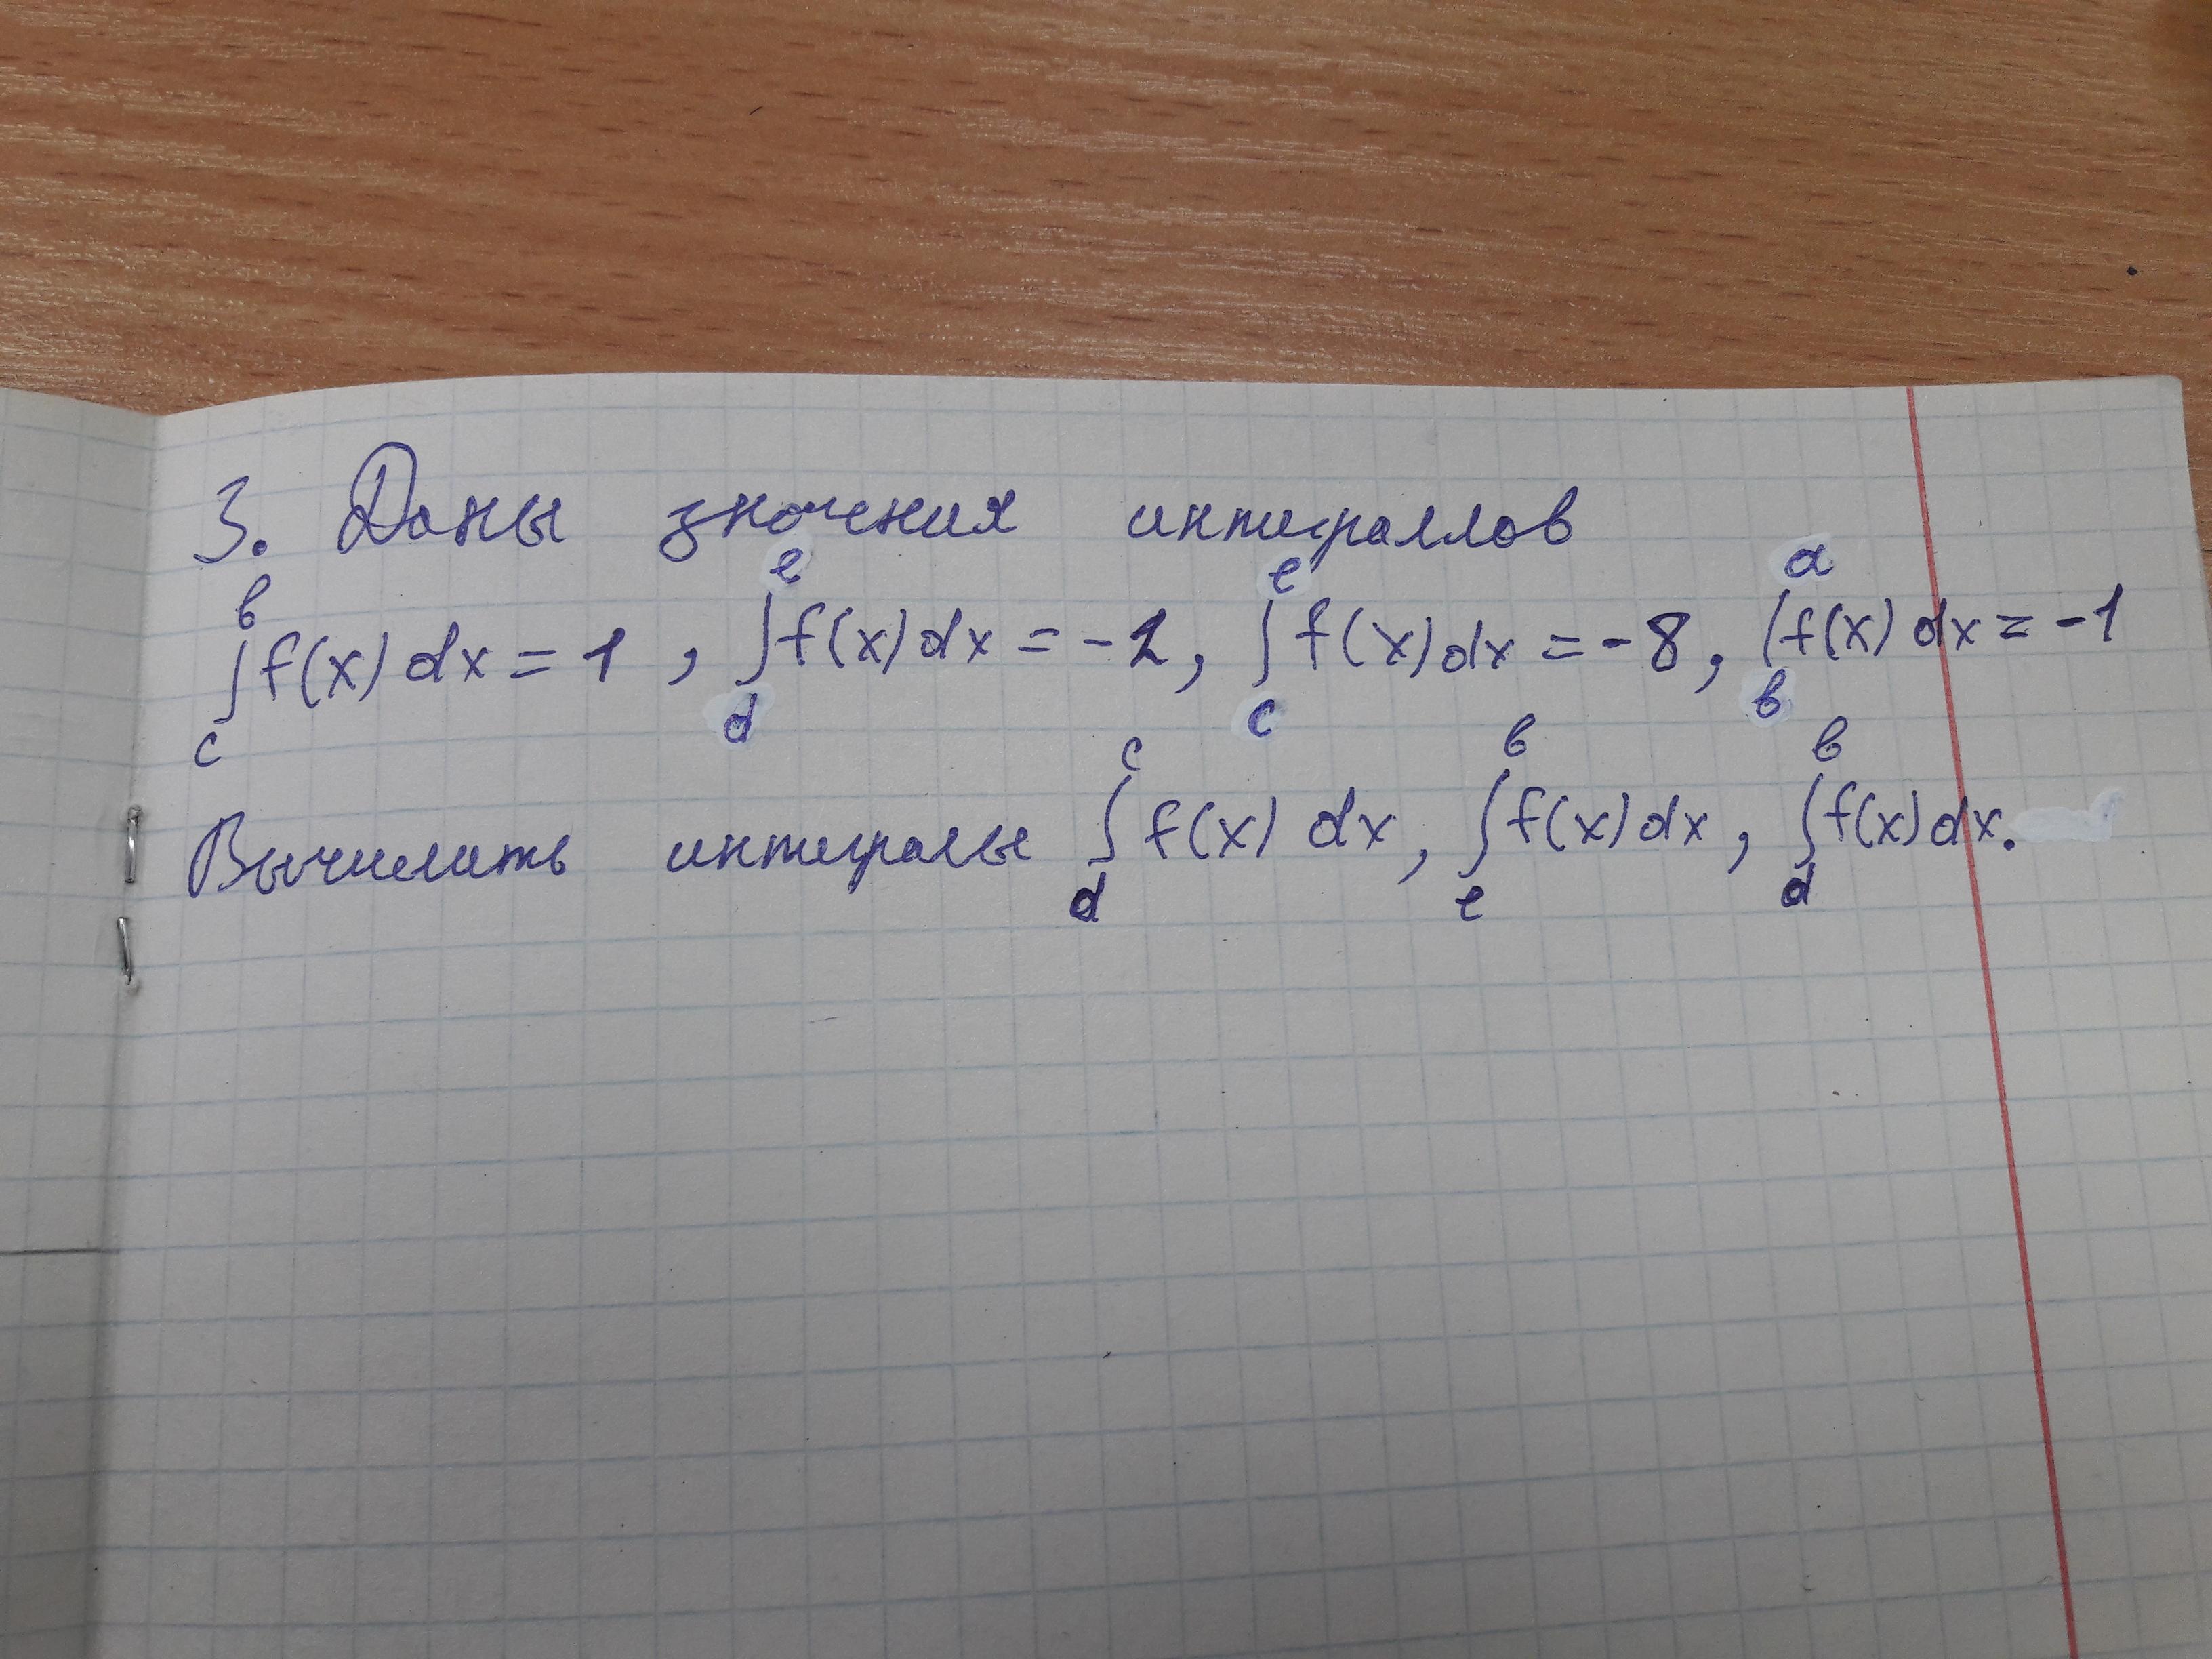 3. Даны значения интеграллов
∫_c^b f(x) dx = 1, ∫_d^e f(x) dx = -2, ∫_c^e f(x) dx = -8, ∫_b^a f(x) dx = -1
Вычислить интегралы ∫_d^c f(x) dx, ∫_e^b f(x) dx, ∫_d^b f(x) dx.